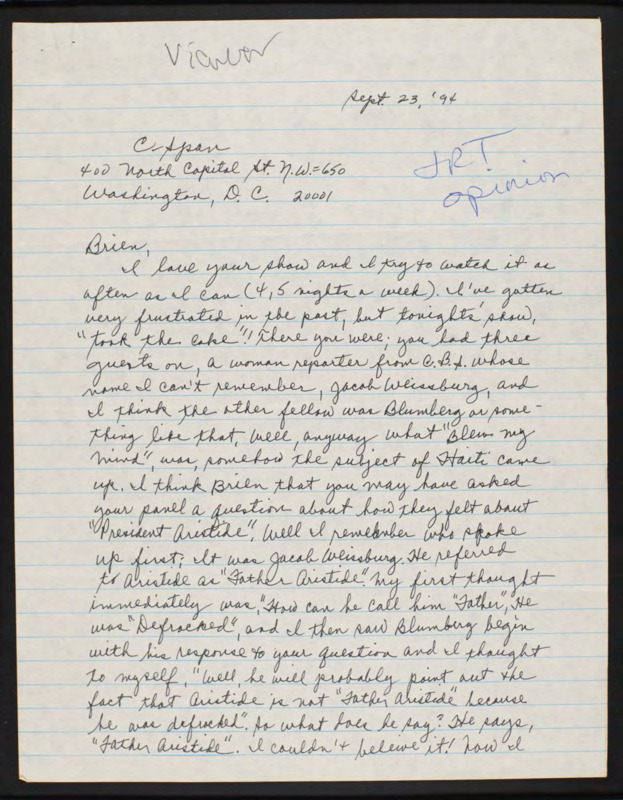 Viewer
Sept. 23, '94
C-Span
400 North Capital St. N.W.=650
Washington, D.C. 20001
JRT
opinion
Brien,
I love your show and I try to watch it as
often as I can (4,5 nights a week). I've gotten
very frustrated in the past, but tonights' show,
"took the cake"! There you were; you had three
guests on, a woman reporter from C.B.S. whose
name I can't remember, Jacob Weissburg, and
I think the other fellow was Blumberg or some-
thing like that, well, anyway what "Blew my
mind", was, somehow the subject of Haiti came
up. I think Brien that you may have asked
your panel a question about how they felt about
"President Aristide". Well I remember who spoke
up first; It was Jacob Weissburg. He referred
to Aristide as "Father Aristide". My first thought
immediately was, "How can he call him "Father", He
was "Defrocked", and I then saw Blumburg begin
with his response to your question and I thought
to myself, "Well, he will probably point out the
fact that Aristide is not "Father Aristide" because
he was defrocked". So what does he say? He says,
"Father Aristide". I couldn't believe it! Now I